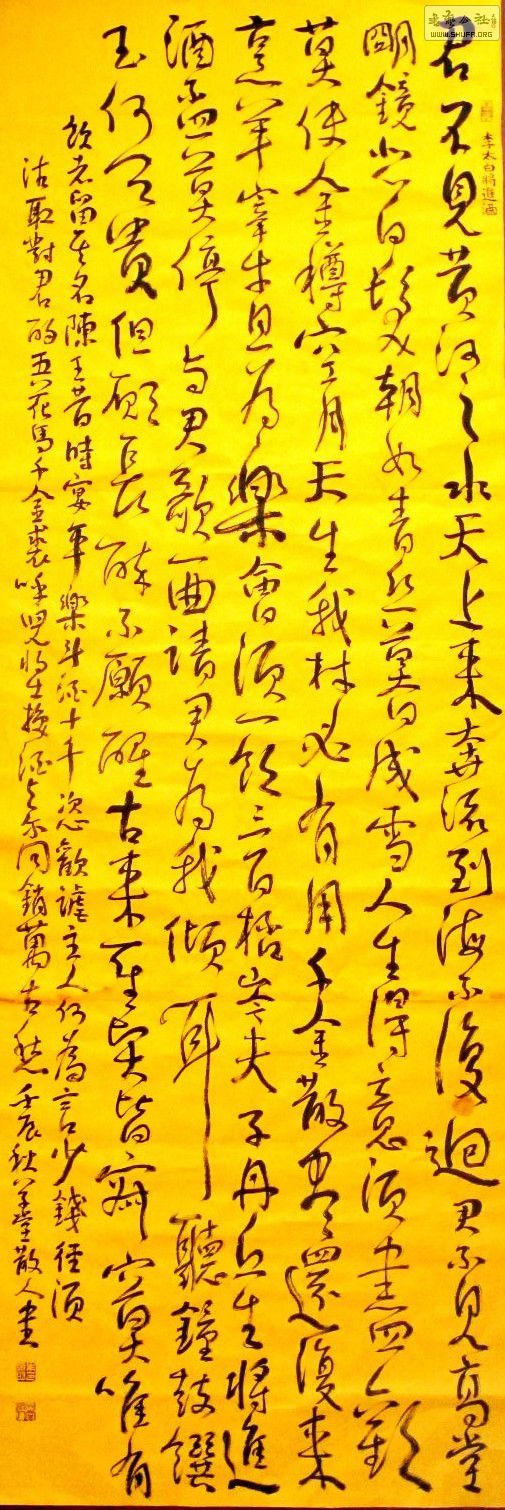 李太白將進酒
君不見黄河之水天上來奔流到海不復迴君不見高堂
明鏡悲白髮朝如青絲暮成雪人生得意須盡歡
莫使金樽空對月天生我材必有用千金散盡還復來
烹羊宰牛且為樂會須一飲三百杯岑夫子丹丘生將進
酒盃莫停與君歌一曲請君為我傾耳聽鐘鼓饌
玉何足貴但願長醉不願醒古來聖賢皆寂寞唯有
飲者留其名陳王昔時宴平樂斗酒十千恣歡謔主人何為言少錢徑須
沽取對君酌五花馬千金裘呼兒將出換酒與爾同銷萬古愁 壬辰秋草堂散人書
WWW.SHUFA.ORG